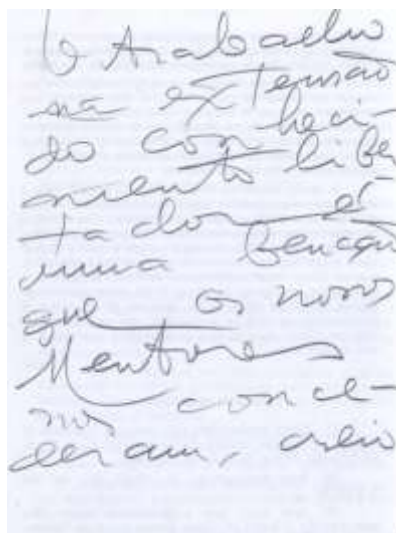 O trabalho
na extensão
do conheci-
mento liber
tador é
uma benção
que os nossos
Mentores
nos conce-
deram, creio